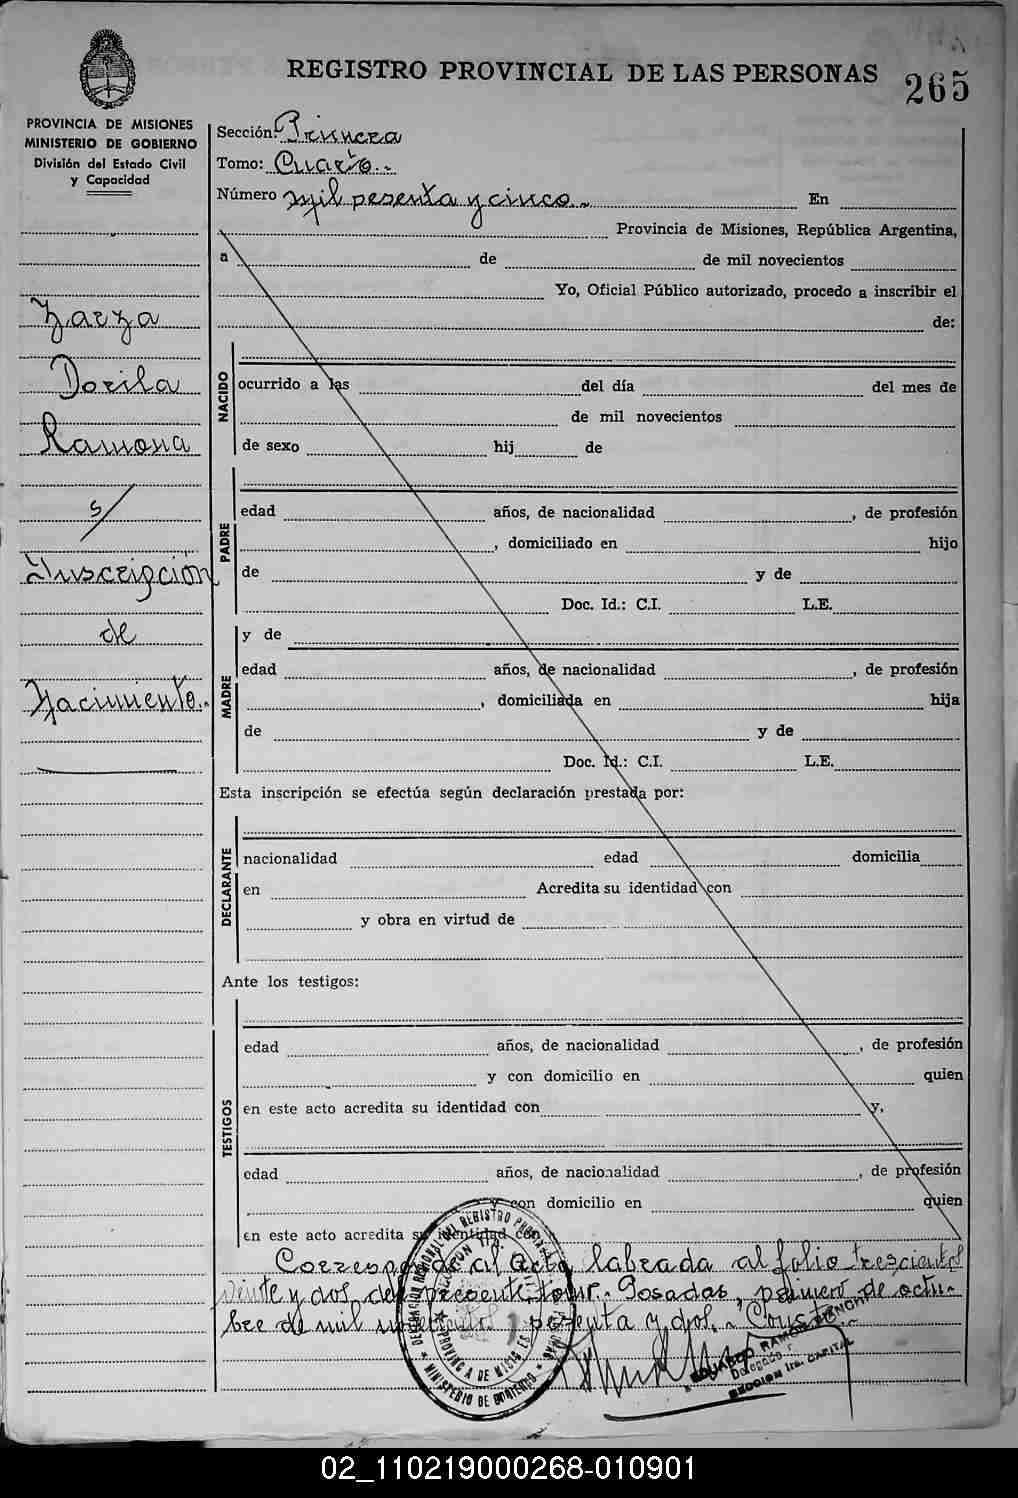 REGISTRO PROVINCIAL DE LAS PERSONAS
265
PROVINCIA DE MISIONES
MINISTERIO DE GOBIERNO
División del Estado Civil
y Capacidad
Zarza
Dorila
Ramona
s/
Inscripción
de
Nacimiento.
Sección: Primera
Tomo: Cuarto.
Número mil sesenta y cinco. En
Provincia de Misiones, República Argentina,
a de de mil novecientos
Yo, Oficial Público autorizado, procedo a inscribir el
de:
NACIDO
ocurrido a las del día del mes de
de mil novecientos
de sexo hij de
PADRE
edad años, de nacionalidad , de profesión
, domiciliado en hijo
de y de
Doc. Id.: C.I. L.E.
MADRE
y de
edad años, de nacionalidad , de profesión
, domiciliada en hija
de y de
Doc. Id.: C.I. L.E.
Esta inscripción se efectúa según declaración prestada por:
DECLARANTE
nacionalidad edad domicilia
en Acredita su identidad con
y obra en virtud de
Ante los testigos:
TESTIGOS
edad años, de nacionalidad , de profesión
y con domicilio en quien
en este acto acredita su identidad con y,
edad años, de nacionalidad , de profesión
y con domicilio en quien
en este acto acredita su identidad con
Corresponde al acta labrada al folio trescientos
veinte y dos del presente tomo. Posadas, primero de octu-
bre de mil novecientos sesenta y dos. Conste.
EDUARDO RAMON BIANCHI
Delegado
SECCION 1ra. CAPITAL
PROVINCIA DE MISIONES
MINISTERIO DE GOBIERNO
02_110219000268-010901